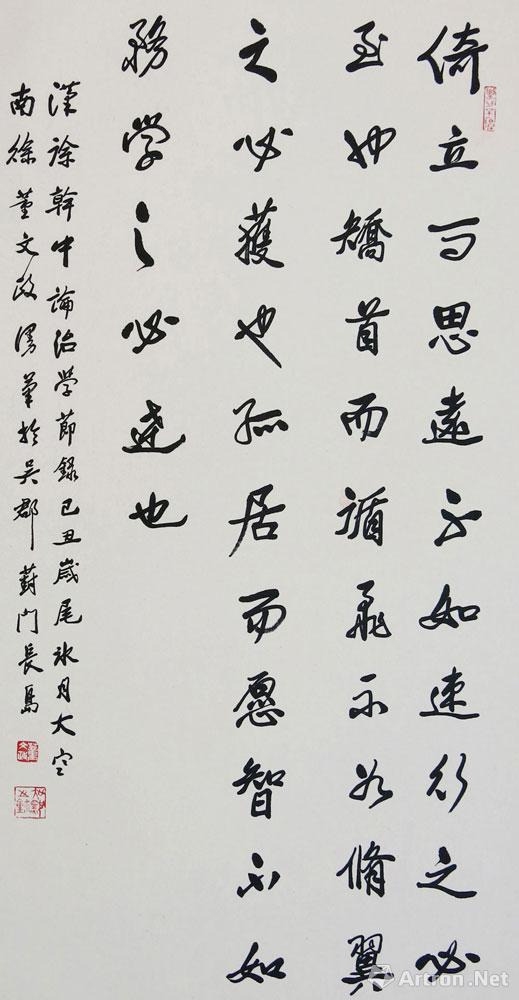 倚立而思遠不如速行之必
至也矯首而循飛不如脩翼
之必獲也孤居而愿智不如
務學之必達也
漢徐幹中論治學節錄己丑歲尾冰月大空
南徐董文政漫筆於吳郡葑門長島
Artron.Net